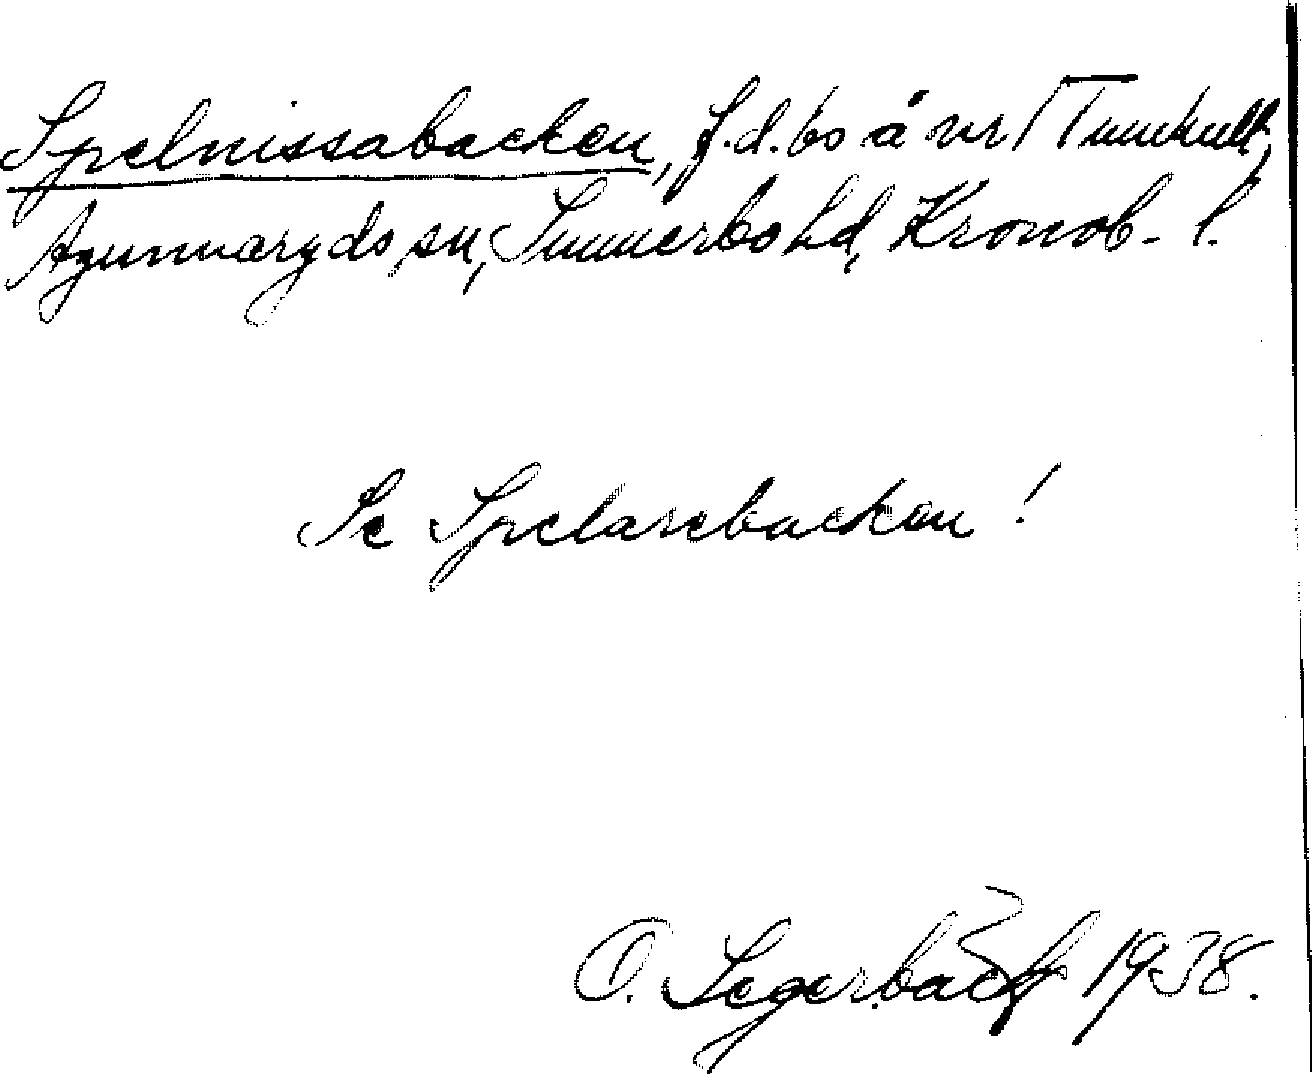 Spelnissabacken, f.d. bo å nr 1 Tunnhult,
Agunnaryds sn, Sunnerbo hd, Kronob. l.
Se Spelarebacken!
O. Segerbäck 1938.